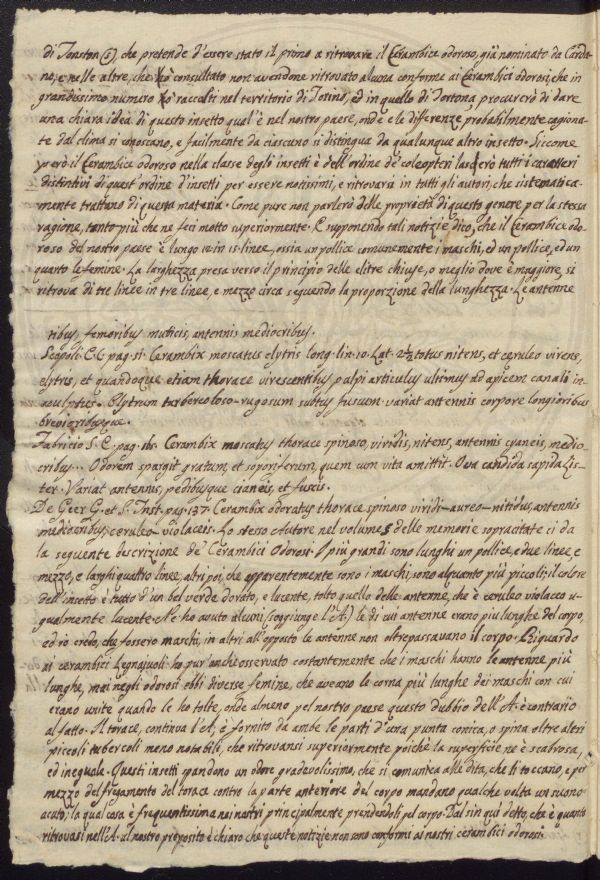 di Jonston (5), che pretende d'essere stato il primo a ritrovare il Cerambice odoroso, già nominato da Carda-
no, e nelle altre, che ho consultato non avendone ritrovato alcuna conforme ai Cerambici odorosi, che in
grandissimo numero ho raccolti nel territorio di Torino, ed in quello di Tortona, procurerò di dare
una chiara idea di questo insetto qual'è nel nostro paese, ond'è le differenze probabilmente cagiona-
te dal clima si conoscano, e facilmente da ciascuno si distingua da qualunque altro insetto. Siccome
però il Cerambice odoroso nella classe degli insetti è dell'ordine de' coleopteri lascierò tutti i caratteri
distintivi di quest'ordine d'insetti per essere notissimi, e ritrovarsi in tutti gli autori, che sistematica-
mente trattano di questa materia. Come pure non parlerò delle proprietà di questo genere per la stessa
ragione, tanto più che ne feci motto superiormente. E supponendo tali notizie dico, che il Cerambice odo-
roso del nostro paese è lungo 12 in 15 linee, ossia un pollice comunemente i maschi, ed un pollice, ed un
quarto le femine. La larghezza presa verso il principio delle elitre chiuse, o meglio dove è maggiore, si
ritrova di tre linee in tre linee, e mezzo circa seguendo la proporzione della lunghezza. Le antenne
ribus, femoribus muticis, antennis mediocribus.
Scopoli E. C. pag. 51. Cerambix moscatus elytris long. lin. 10. Lat. 2½ totus nitens, et ceruleo virens,
elytris, et quandoque etiam thorace virescentibus palpi articulus ultimus ad apicem canali in-
sculptus. Elytrum tuberculoso-rugosum subtus fuscum. variat antennis corpore longioribus
brevioribusque.
Fabricio S. E. pag. 165. Cerambix moscatus thorace spinoso, viridis, nitens, antennis cyaneis, medio-
cribus... Odorem spargit gratum, et soporiferum, quem cum vita amittit. Ova candida sapida Lis-
ter. Variat antennis, pedibusque cianeis, et fuscis.
De Geer G. et S. Inst. pag. 137. Cerambix odoratus thorace spinoso viridi-aureo-nitidus, antennis
mediocribus, ceruleo-violaceis. Lo stesso Autore nel volume 5 delle memorie sopracitate ci dà
la seguente descrizione de' Cerambici Odorosi. I più grandi sono lunghi un pollice, e due linee, e
mezzo, e larghi quattro linee, altri poi, che apparentemente sono i maschi, sono alquanto più piccoli; il colore
dell'insetto è tutto d'un bel verde dorato, e lucente, tolto quello delle antenne, che è ceruleo violaceo u-
gualmente lucente. Ne ho avuto alcuni (soggiunge l'A.) le di cui antenne erano più lunghe del corpo,
ed io credo, che fossero maschi, in altri all'opposto le antenne non oltrepassavano il corpo. Riguardo
ai cerambici Legnajuoli ho pur anche osservato costantemente che i maschi hanno le antenne più
lunghe, mai negli odorosi ebbi diverse femine, che aveano le corna più lunghe dei maschi con cui
erano unite quando le ho tolte, onde almeno pel nostro paese questo dubbio dell'A. è contrario
al fatto. Il torace, continua l'A., è fornito da ambe le parti d'una punta conica, o spina oltre altri
piccoli tubercoli meno notabili, che ritrovansi superiormente poichè la superficie ne è scabrosa,
ed ineguale. Questi insetti spandono un odore gradevolissimo, che si comunica alle dita, che li toccano, e per
mezzo del fregamento del torace contro la parte anteriore del corpo mandano qualche volta un suono
acuto; la qual cosa è frequentissima nei nostri principalmente prendendoli pel corpo. Dal sin qui detto, che è quanto
ritrovasi nell'A. al nostro proposito è chiaro che queste notizie non sono conformi ai nostri cerambici odorosi.